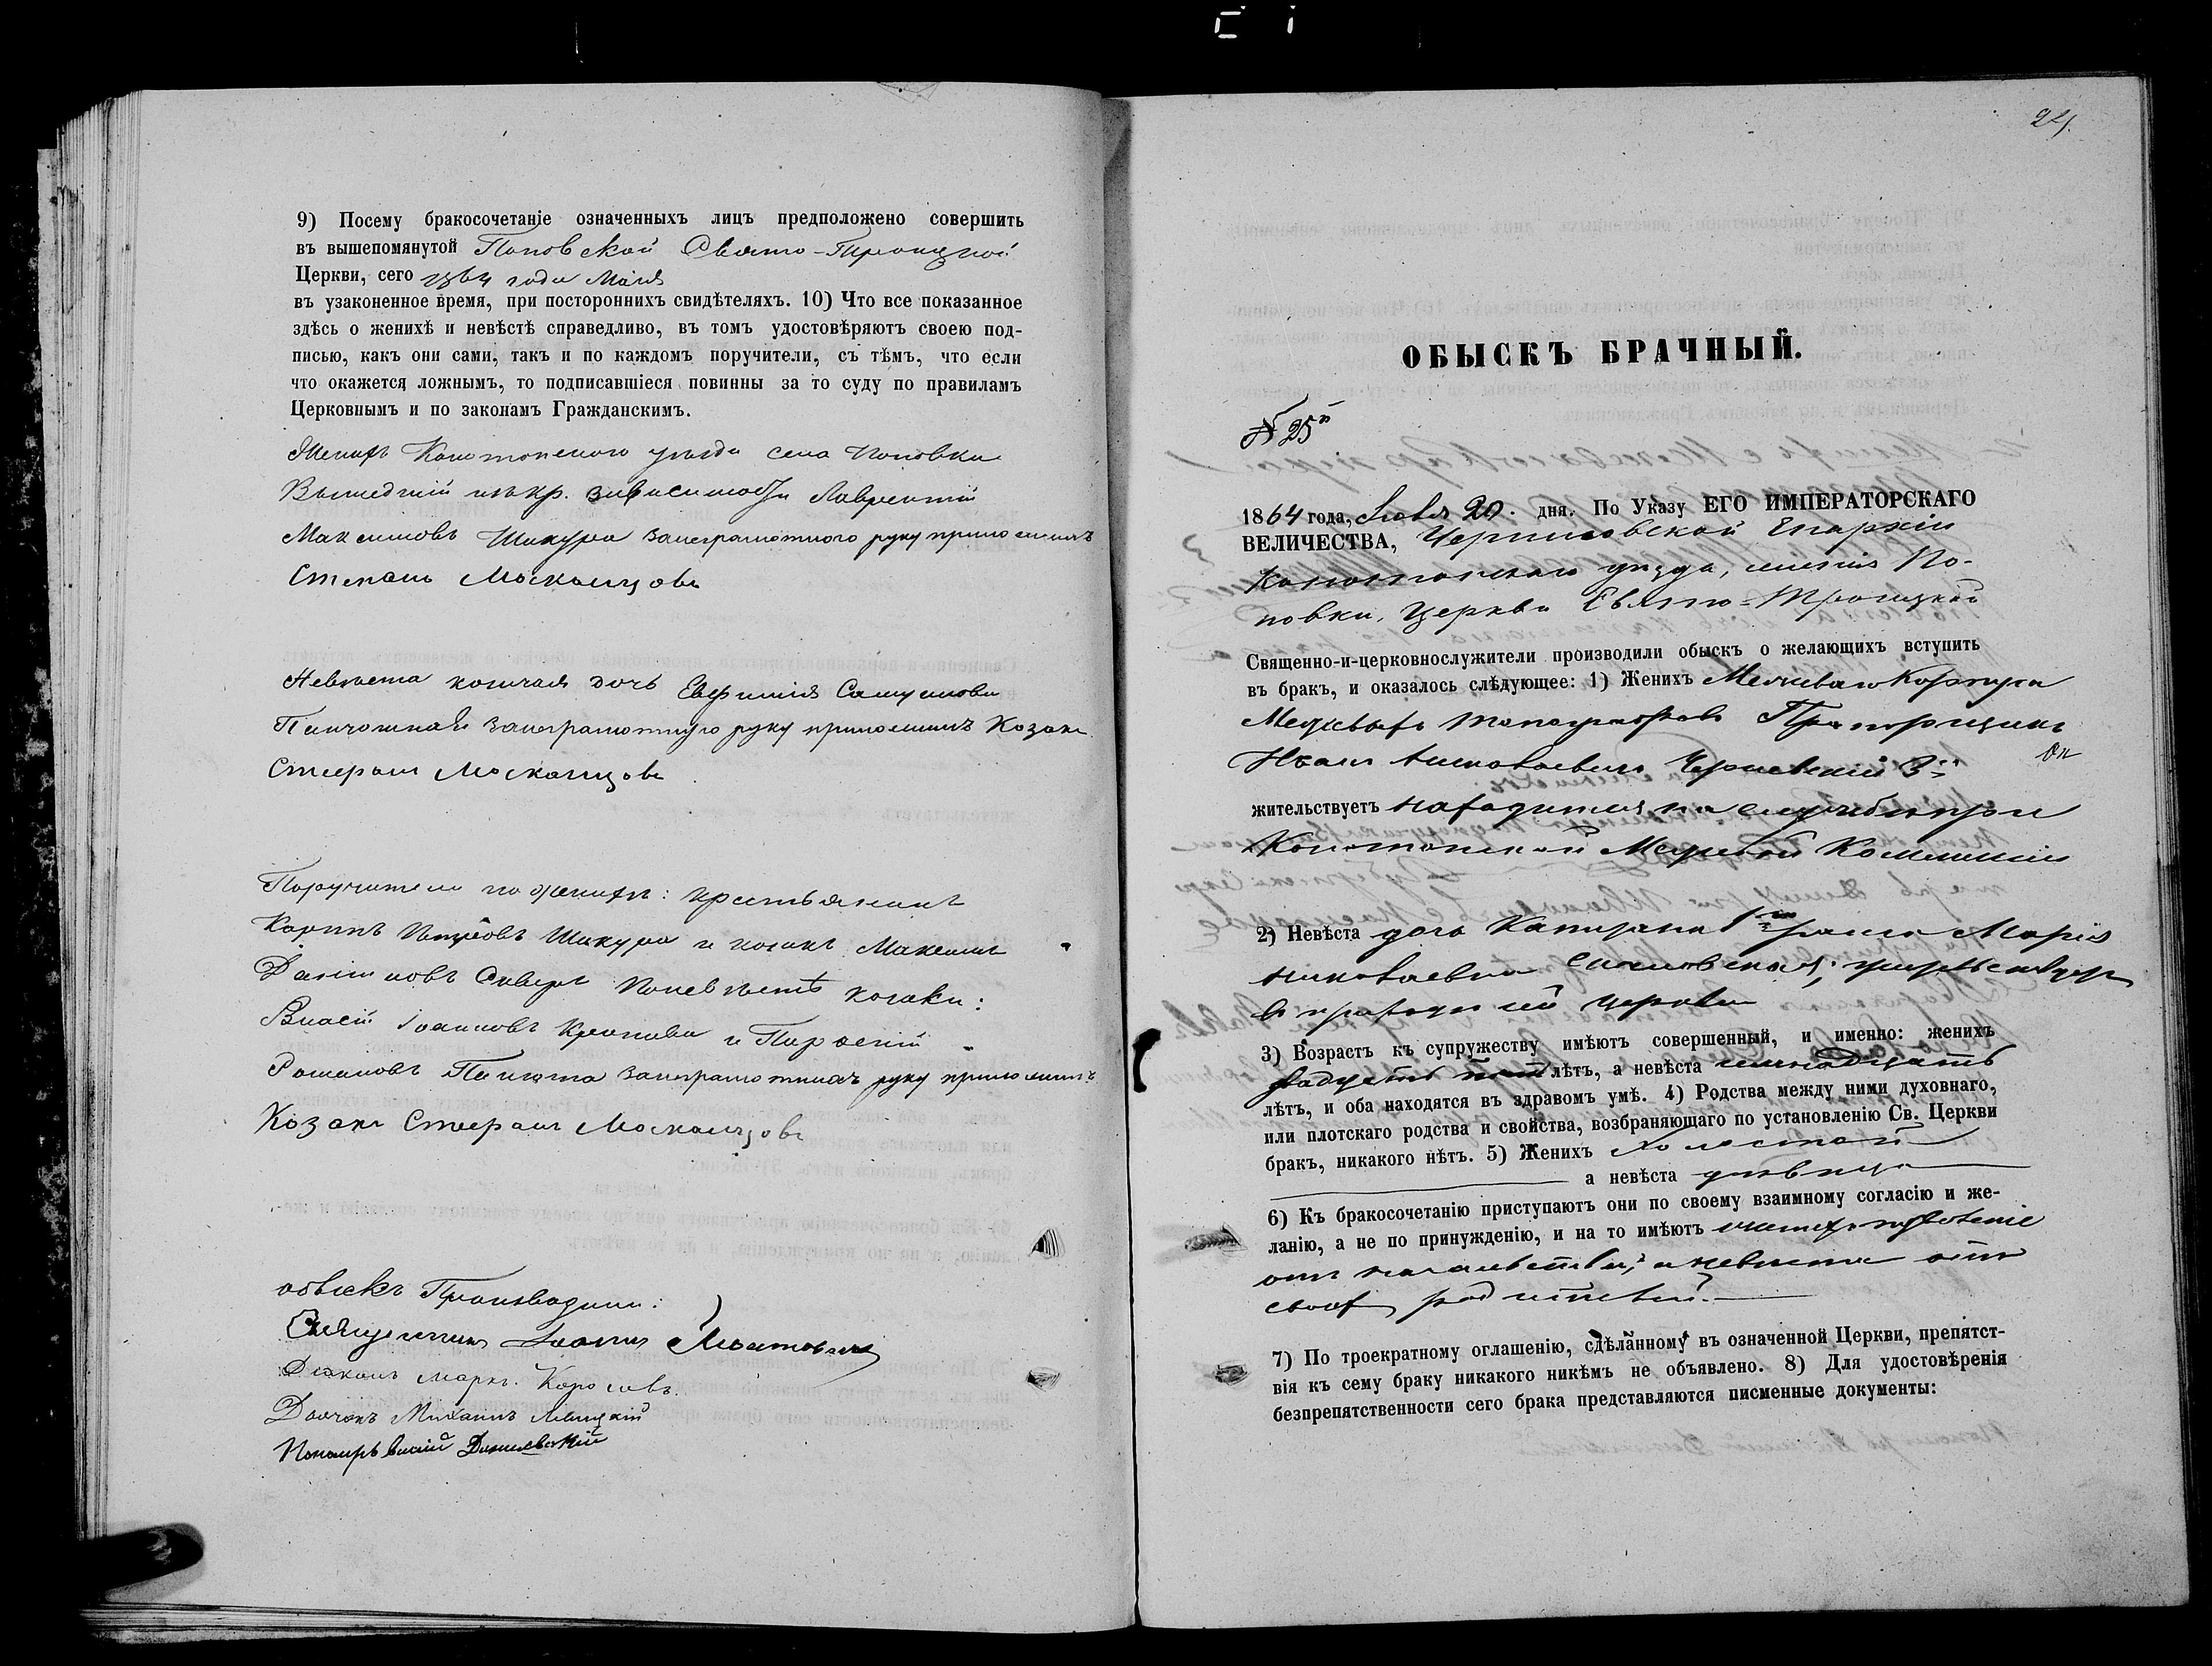 9) Посему бракосочетаніе означенныхъ лицъ предположено совершить
въ вышепомянутой Поповской Свято-Троицкой
Церкви, сего 1864 года Маія
въ узаконенное время, при постороннихъ свидѣтеляхъ. 10) Что все показанное
здѣсь о женихѣ и невѣстѣ справедливо, въ томъ удостовѣряютъ своею под-
писью, какъ они сами, такъ и по каждомъ поручители, съ тѣмъ, что если
что окажется ложнымъ, то подписавшіеся повинны за то суду по правиламъ
Церковнымъ и по законамъ Гражданскимъ.
Женихъ Конотопского уѣзда села Поповки
Вышедшій изъ кр. зависимости Лаврентій
Максимовъ Шикура занеграмотного руку приложилъ
Степанъ Москальцовъ
Невѣста козичья дочь Евфимія
занеграмотную руку приложилъ Козакъ
Стефанъ Москальцовъ
Поручители по женихѣ: крестьянинъ
Карпъ Петровъ Шикура и козакъ Максимъ
Даніиловъ Сиверъ Поневѣстѣ козаки:
Власій Іоанновъ Кропива и
Романовъ занеграмотныхъ руку приложилъ
Козакъ Стефанъ Москальцовъ
обыскъ Производили:
Священникъ Іоаннъ
Діаконъ Маркъ
Дьячокъ Михаилъ Левицкій
Пономарь
24.
ОБЫСКЪ БРАЧНЫЙ.
№ 25й
1864 года, 20. дня. По Указу ЕГО ИМПЕРАТОРСКАГО
ВЕЛИЧЕСТВА, Черниговской Епархіи
Конотопскаго уѣзда, По-
повки, Церкви Свято-Троицкой
Священно-и-церковнослужители производили обыскъ о желающихъ вступить
въ бракъ, и оказалось слѣдующее: 1) Женихъ Межеваго Корпуса
Межевыхъ топографовъ Прапорщикъ
Иванъ Николаевичъ Черневскій 3й Он
жительствуетъ находится на службѣ при
Конотопской Межевой Коммисіи
2) Невѣста дочь Капитана 1го ранга Марія
Николаевна жительствуетъ
въ приходѣ сей церкви
3) Возрастъ къ супружеству имѣютъ совершенный, и именно: женихъ
двадцать лѣтъ, а невѣста
лѣтъ, и оба находятся въ здравомъ умѣ. 4) Родства между ними духовнаго,
или плотскаго родства и свойства, возбраняющаго по установленію Св. Церкви
бракъ, никакого нѣтъ. 5) Женихъ холостой
а невѣста дѣвица
6) Къ бракосочетанію приступаютъ они по своему взаимному согласію и же-
ланію, а не по принужденію, и на то имѣютъ женихъ позволеніе
отъ начальства, а невѣста отъ
своихъ родителей.
7) По троекратному оглашенію, сдѣланному въ означенной Церкви, препятст-
вія къ сему браку никакого никѣмъ не объявлено. 8) Для удостовѣренія
безпрепятственности сего брака представляются писменные документы: